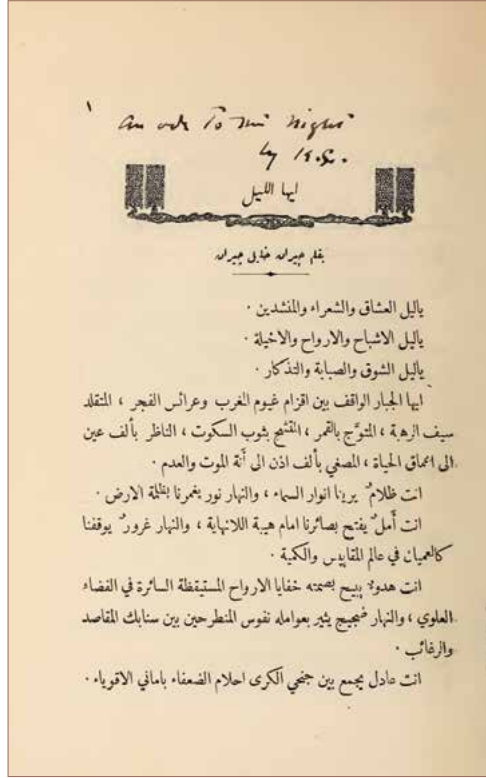 ١
An ode to the Night
by K.G.
ايها الليل
بقلم جبران خليل جبران
ياليل العشاق والشعراء والمنشدين ٠
ياليل الاشباح والارواح والاخيلة ٠
ياليل الشوق والصبابة والتذكار ٠
ايها الجبار الواقف بين اقزام غيوم المغرب وعرائس الفجر ، المتقلد
سيف الرهبة ، المتوَّج بالقمر ، المتشح بثوب السكوت ، الناظر بألف عين
الى اعماق الحياة ، المصغي بألف اذن الى أنة الموت والعدم ٠
انت ظلامٌ يرينا انوار السماء ، والنهار نور يغمرنا بظلمة الارض ٠
انت أملٌ يفتح بصائرنا امام هيبة اللانهاية ، والنهار غرورٌ يوقفنا
كالعميان في عالم المقاييس والكمية ٠
انت هدوءٌ يبيح بصمته خفايا الارواح المستيقظة السائرة في الفضاء
العلوي ، والنهار ضجيج يثير بعوامله نفوس المنطرحين بين سنابك المقاصد
والرغائب ٠
انت عادل يجمع بين جنحي الكرى احلام الضعفاء باماني الاقوياء ٠